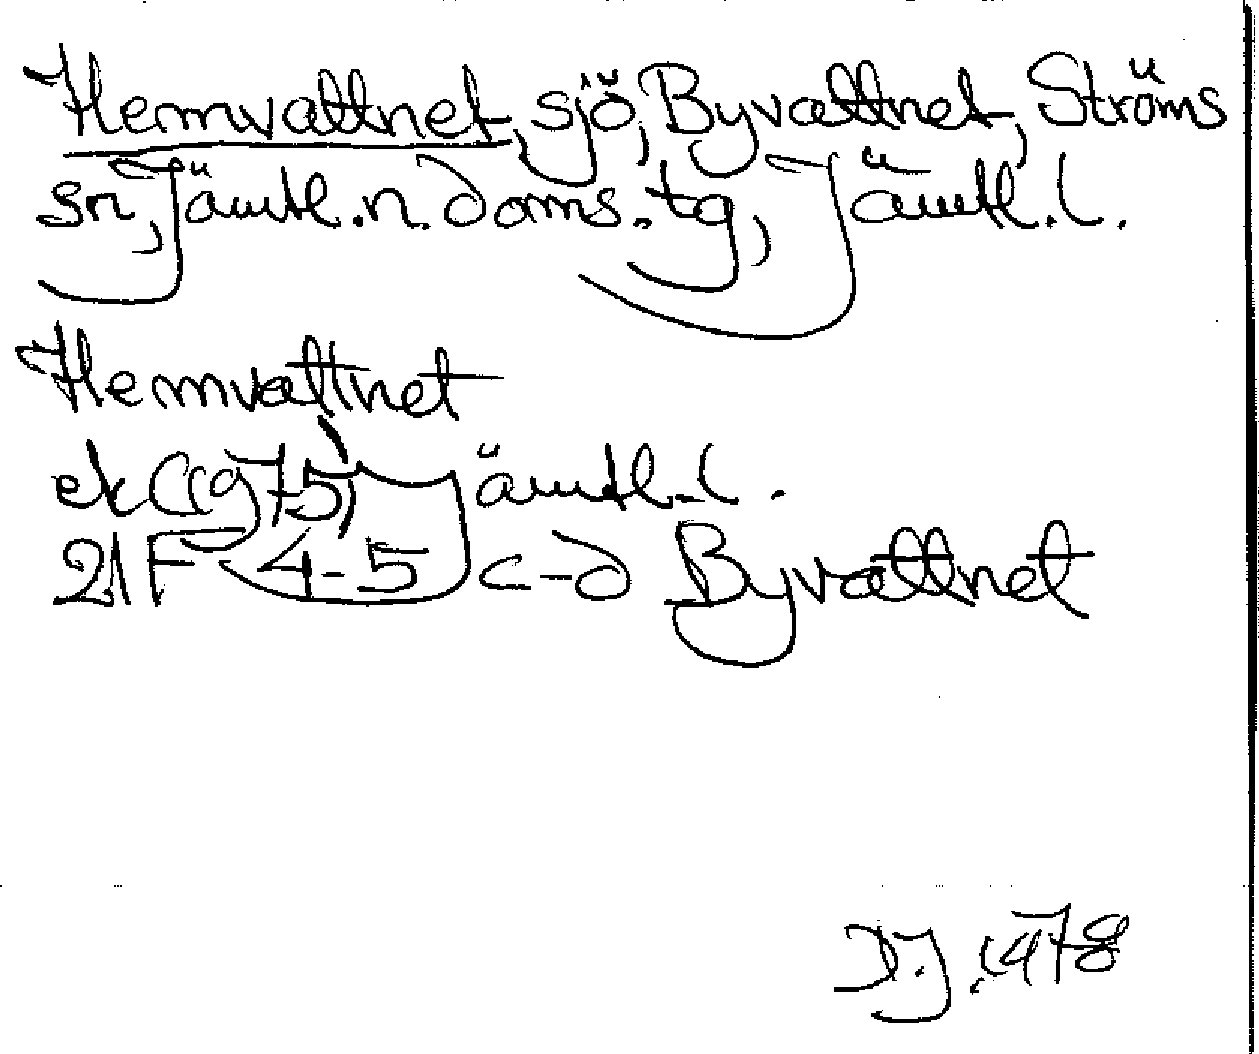 Hemvattnet, sjö, Byvattnet, Ströms
sn, Jämtl. n. doms. tg, Jämtl. l.
Hemvattnet
ek (1975) Jämtl. l.
21 F 4-5 c-d Byvattnet
D.J. 1978